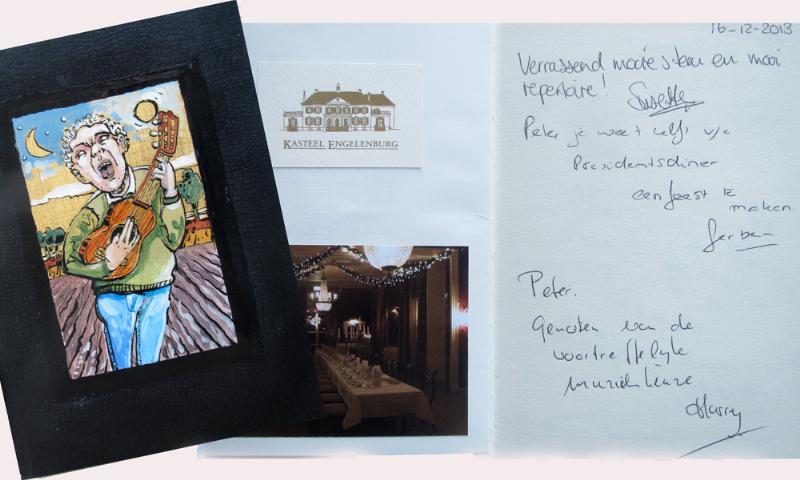 KASTEEL ENGELENBURG
16-12-2013
Verrassend mooie stem en mooi
repertoire!
Susette
Peter je weet zelfs v/e
Presidentsdiner
een feest te
maken
Gerben
Peter.
Genoten van de
voortreffelijke
muziekkeuze
Harry